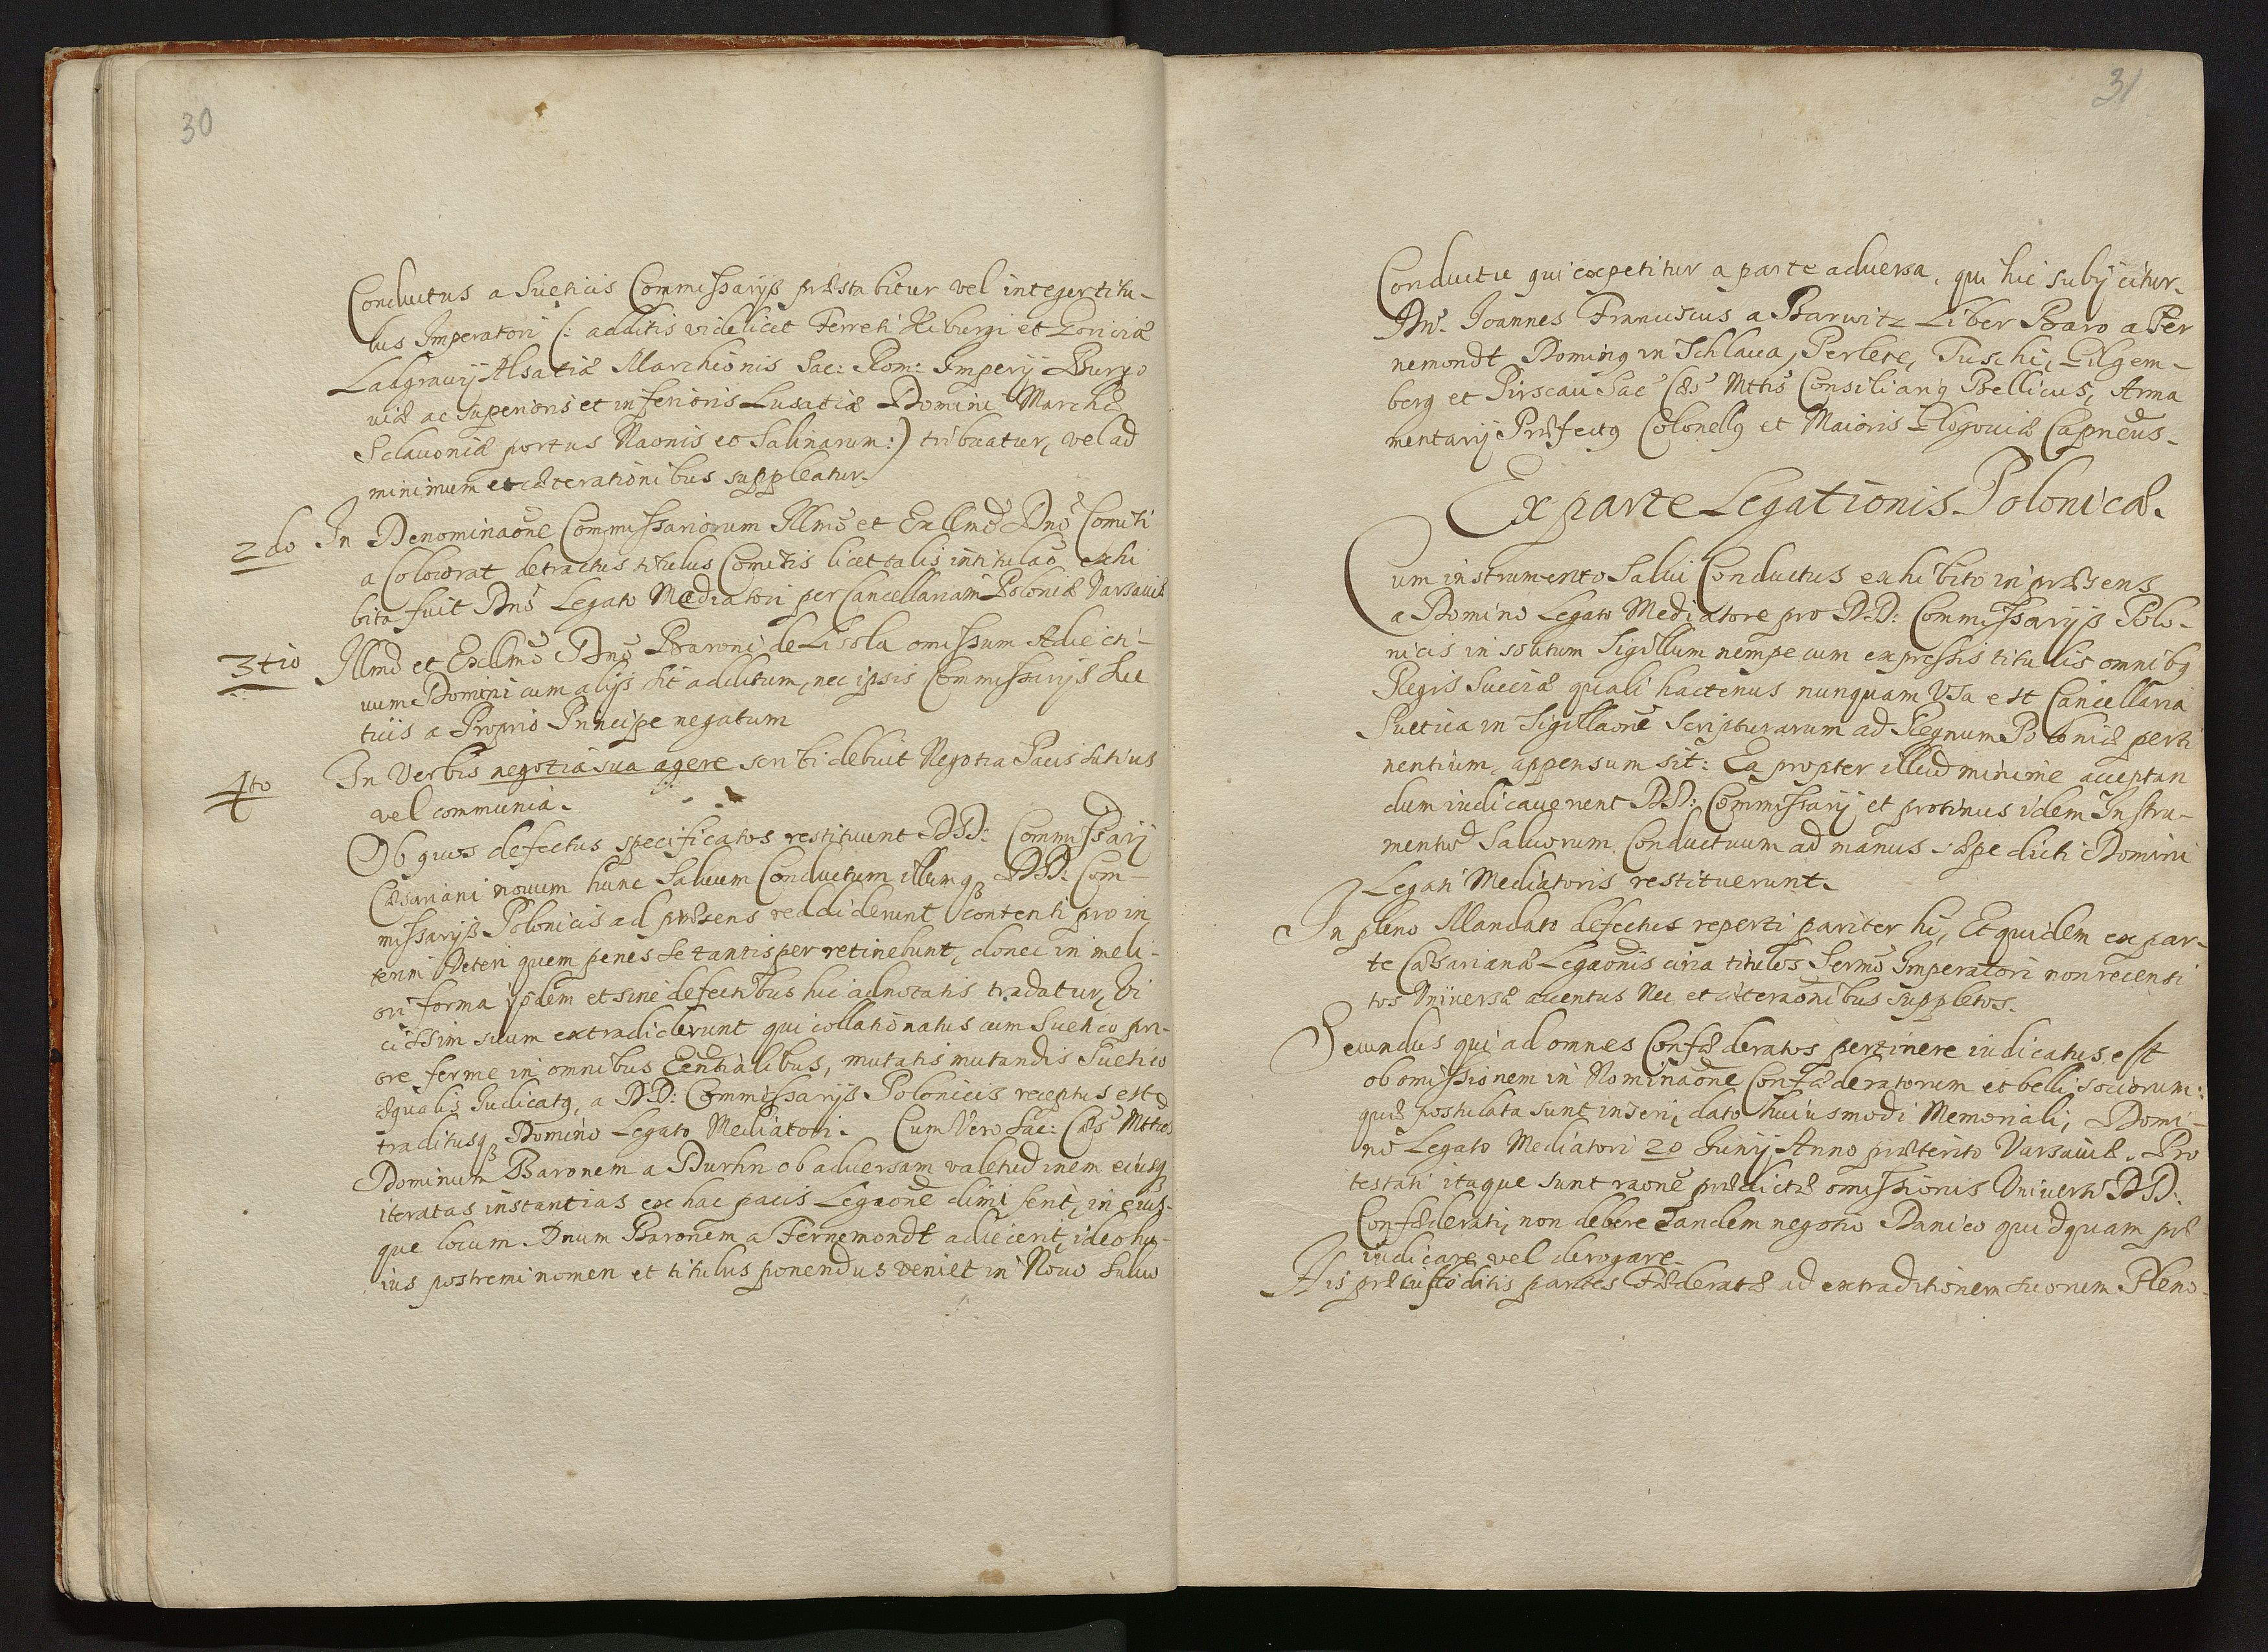 30
Conductus a Sueticis Commissarijs præstabitur vel integer titu-
lus Imperatori (: additis videlicet Ferreti Kiburgi et Goriciæ
Ladgravij Alsatiæ Marchionis Sac: Rom: Imperij Burgo
viæ ac superioris et inferioris Lusatiæ Domini Marchiæ
Sclavoniæ portus Naonis et Salinarum:) tribuatur, vel ad
minimum et cæterationibus suppleatur.
2do In Denominaõne Commissariorum Illmo et Exllmo Dno Comiti
a Colowrat detractus titulus Comitis licet talis intitulaõ exhi
bita fuit Dno Legato Mediatori per Cancellariam Poloniæ Varsaviæ
3tio Illmo et Exllmo Dno Baroni de Lisola omissum Adiecti-
vum Domini cum alijs sit additum, nec ipsis Commissarijs Sue
ticis a Proprio Principe negatum
4to In Verbis negotia sua agere scribi debuit Negotia Pacis
vel communia.
Ob quos defectus specificatos restituunt DD: Commissarij
Cæsariani novum hunc Salvum Conductum illumq DD: Com-
missarijs Polonicis ad præsens reddiderunt contenti pro in
terim Veteri quem penes se tantisper retinebunt, donec in meli-
ori forma ijsdem et sine defectibus hic adnotatis tradatur, Vi
cissim suum extradiderunt qui collationatus cum Suetico pri-
ore ferme in omnibus Eentialibus, mutatis mutandis Suetico
æqualis Judicatq, a DD: Commissarijs Polonicis receptus est
traditusq Domino Legato Mediatori. Cum Vero Sac: Cæs Mttas
Dominum Baronem a Durhn ob adversam valetudinem eiusq
iteratas instantias ex hac pacis Legaone dimiserit, in eius-
que locum Dnum Baronem a Fernemondt adiecerit, ideo hu-
ius postremi nomen et titulus ponendus veniet in Novo Salvo
31
Conductu qui expetitur a parte adversa, qui hic subijcitur.
Dns. Joannes Franciscus a Barwitz Liber Baro a Fer
nemondt Dominq in Schlava, Perlete, Tuschi, Pilgem-
berg et Pirscau Sac Cæs Mttis Consiliariq Bellicus, Arma
mentarij Præfectq Colonellq et Maioris Glogoviæ Capneus.
Ex parte Legationis Polonicæ.
Cum instrumento Salvi Conductus exhibito in præsens
a Domino Legato Mediatore pro DD: Commissarijs Polo-
nicis insolitum Sigillum nempe cum expressis titulis omnibq
Regis Sueciæ quali hactenus nunquam Usa est Cancellaria
Suetica in Sigillaone Scripturarum ad Regnum Poloniæ perti
nentium, appensum sit: Ea propter illud minime acceptan
dum iudicaverunt DD: Commissarij et protinus idem Instru-
mentum Salvorum Conductuum ad manus sæpe dicti Domini
Legati Mediatoris restituerunt.
In pleno Mandato defectus reperti pariter hi, Et quidem ex par-
te Cæsarianæ Legaonis circa titulos Sermo Imperatori non recensi
tos Universæ accentus Nec et cæteraonibus suppletos.
Secundus qui ad omnes Confæderatos pertinere iudicatus est
ob omissionem in Nominaone Confæderatorum et belli sociorum:
quæ postulata sunt inseri, dato huiusmodi Memoriali, Domi-
no Legato Mediatori 20 Junij Anno præterito Varsaviæ. Pro
testati itaque sunt raone prædictæ omissionis Universi DD:
Confæderati, non debere eandem negotio Danico quidquam præ
iudicare vel derogare.
His præcustoditis partes Fæderatæ ad extraditionem suorum Pleno-